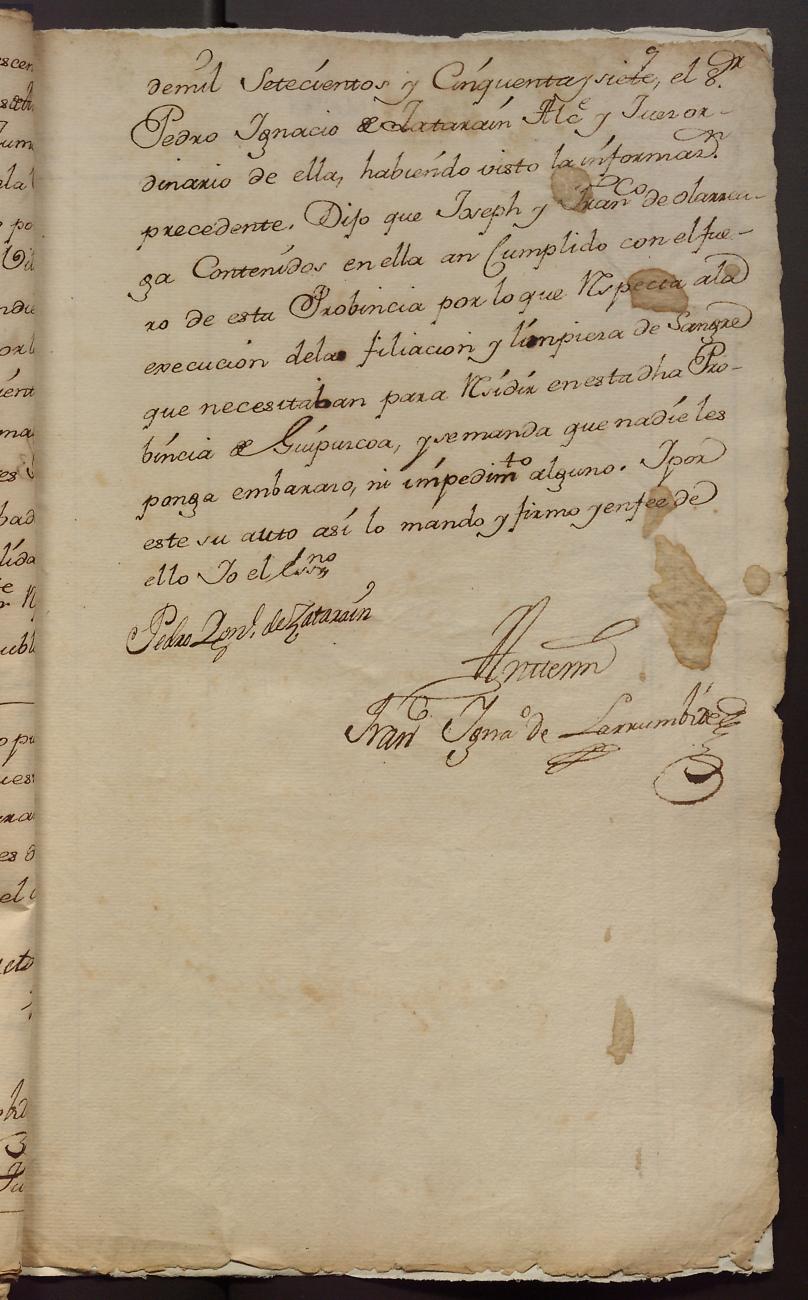 demil Setecientos y Cinquenta y siete, el S.r
Pedro Ignacio de Zatarain Alc.e y Juez or-
dinario de ella, habiendo visto la informaz.n
precedente. Dijo que Joseph y Fran.co de olarrea-
ga Contenidos en ella an Cumplido con el fue-
ro de esta Probincia por lo que Respecta a la
execucion de la filiacion y limpieza de Sangre
que necesitaban para Residir en esta dha Pro-
bincia de Guipuzcoa, y se manda que nadie les
ponga embarazo, ni impedim.to alguno. I por
este su auto asi lo mando y firmo y en fee de
ello Io el Ess.no
Pedro Ign.o de Zatarain
Ante mi
Fran.co Igna.o de Larrumbide